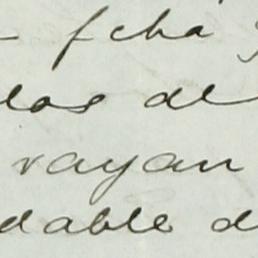 fcha
los de
rayan
dable d